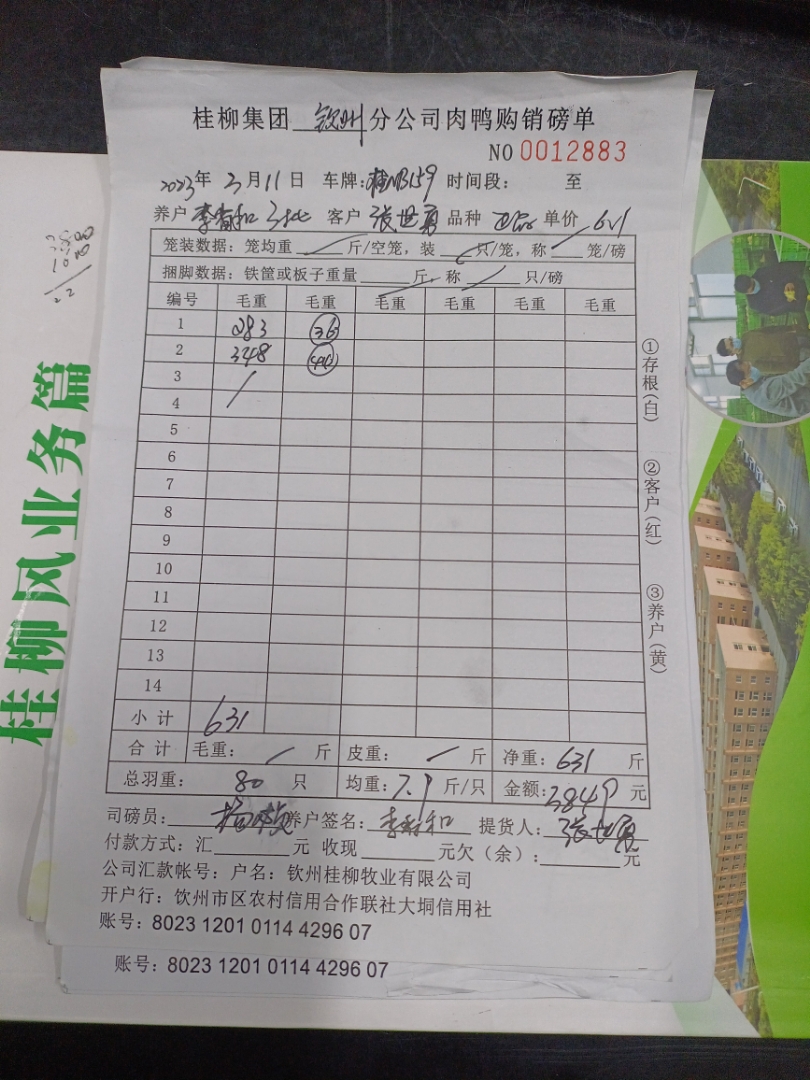 桂柳集团 钦州 分公司肉鸭购销磅单
NO 0012883
2023年 3月11日 车牌:桂NB159 时间段: 至
养户 李春和 客户 张世勇 品种 单价 6.1
笼装数据:笼均重 斤/空笼,装 只/笼,称 笼/磅
捆脚数据:铁筐或板子重量 斤,称 只/磅
编号 毛重 毛重 毛重 毛重 毛重 毛重
1 283 36
2 348
3
4
5
6
7
8
9
10
11
12
13
14
小计 631
合计 毛重: 斤 皮重: 斤 净重:631 斤
总羽重: 80 只 均重:7.9 斤/只 金额:3849 元
司磅员: 养户签名:李春和 提货人:张世勇
付款方式:汇 元 收现 元欠(余): 元
公司汇款帐号:户名:钦州桂柳牧业有限公司
开户行:钦州市区农村信用合作联社大垌信用社
账号:8023 1201 0114 4296 07
账号:8023 1201 0114 4296 07
①存根(白)
②客户(红)
③养户(黄)
桂柳风业务篇